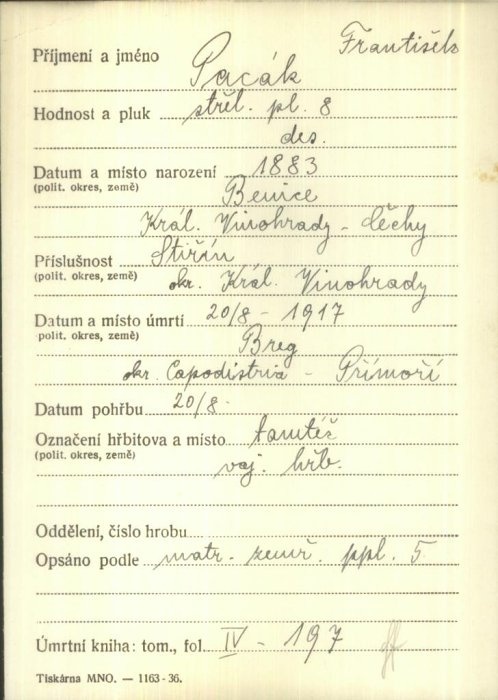 František
Příjmení a jméno Pacák
Hodnost a pluk střel. pl. 8
des.
Datum a místo narození 1883
(polit. okres, země) Benice
Král. Vinohrady - Čechy
Příslušnost Štiřín
(polit. okres, země) okr. Král. Vinohrady
Datum a místo úmrtí 20/8 - 1917
(polit. okres, země) Breg
okr. Capodistria - Přímoří
Datum pohřbu 20/8.
Označení hřbitova a místo tamtéž
(polit. okres, země) voj. hřb.
Oddělení, číslo hrobu
Opsáno podle matr. zemř. ppl. 5
Úmrtní kniha: tom., fol. IV - 197
Tiskárna MNO. — 1163-36.